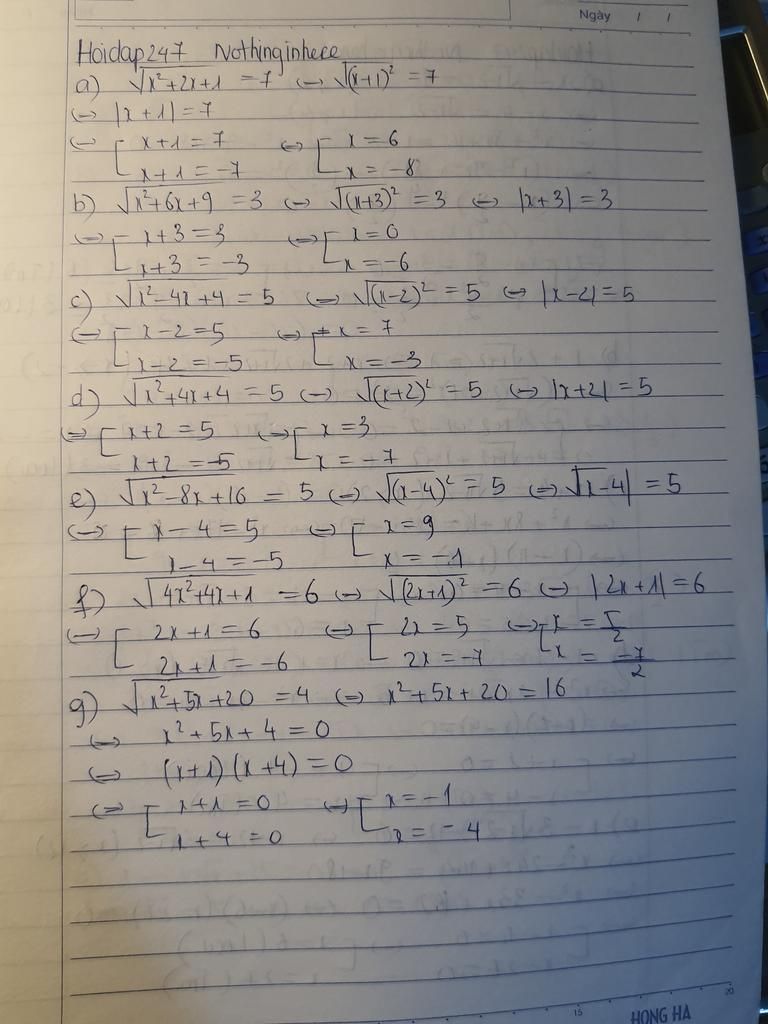 Ngày / /
Hoidap247 Nothinginhere
a) √(x²+2x+1) = 7 ⇔ √(x+1)² = 7
⇔ |x+1| = 7
⇔ [ x+1 = 7 ⇔ [ x = 6
x+1 = -7 x = -8
b) √(x²+6x+9) = 3 ⇔ √(x+3)² = 3 ⇔ |x+3| = 3
⇔ [ x+3 = 3 ⇔ [ x = 0
x+3 = -3 x = -6
c) √(x²-4x+4) = 5 ⇔ √(x-2)² = 5 ⇔ |x-2| = 5
⇔ [ x-2 = 5 ⇔ [ x = 7
x-2 = -5 x = -3
d) √(x²+4x+4) = 5 ⇔ √(x+2)² = 5 ⇔ |x+2| = 5
⇔ [ x+2 = 5 ⇔ [ x = 3
x+2 = -5 x = -7
e) √(x²-8x+16) = 5 ⇔ √(x-4)² = 5 ⇔ √x-4| = 5
⇔ [ x-4 = 5 ⇔ [ x = 9
x-4 = -5 x = -1
f) √(4x²+4x+1) = 6 ⇔ √(2x+1)² = 6 ⇔ |2x+1| = 6
⇔ [ 2x+1 = 6 ⇔ [ 2x = 5 ⇔ [ x = 5/2
2x+1 = -6 2x = -7 x = -7/2
g) √(x²+5x+20) = 4 ⇔ x²+5x+20 = 16
⇔ x²+5x+4 = 0
⇔ (x+1)(x+4) = 0
⇔ [ x+1 = 0 ⇔ [ x = -1
x+4 = 0 x = -4
15 20
HONG HA